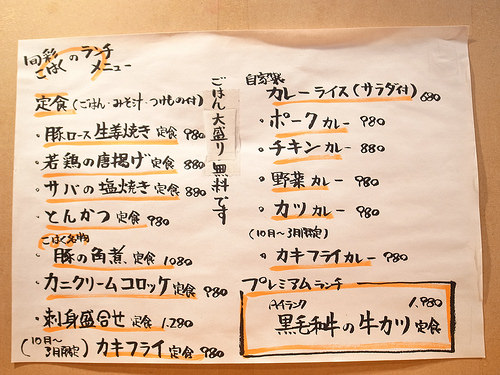 旬彩
こはくのランチ
メニュー
定食（ごはん・みそ汁・つけもの付）
・豚ロース生姜焼き定食 980
・若鶏の唐揚げ定食 880
・サバの塩焼き定食 880
・とんかつ定食 980
こはく名物
・豚の角煮定食 1080
・カニクリームコロッケ定食 980
・刺身盛合せ定食 1.280
（10月〜3月限定）カキフライ定食 980
ごはん大盛り無料です
自家製
カレーライス（サラダ付）680
・ポークカレー 980
・チキンカレー 880
・野菜カレー 980
・カツカレー 980
（10月〜3月限定）
・カキフライカレー 980
プレミアムランチ
A4ランク 1.980
黒毛和牛の牛カツ定食